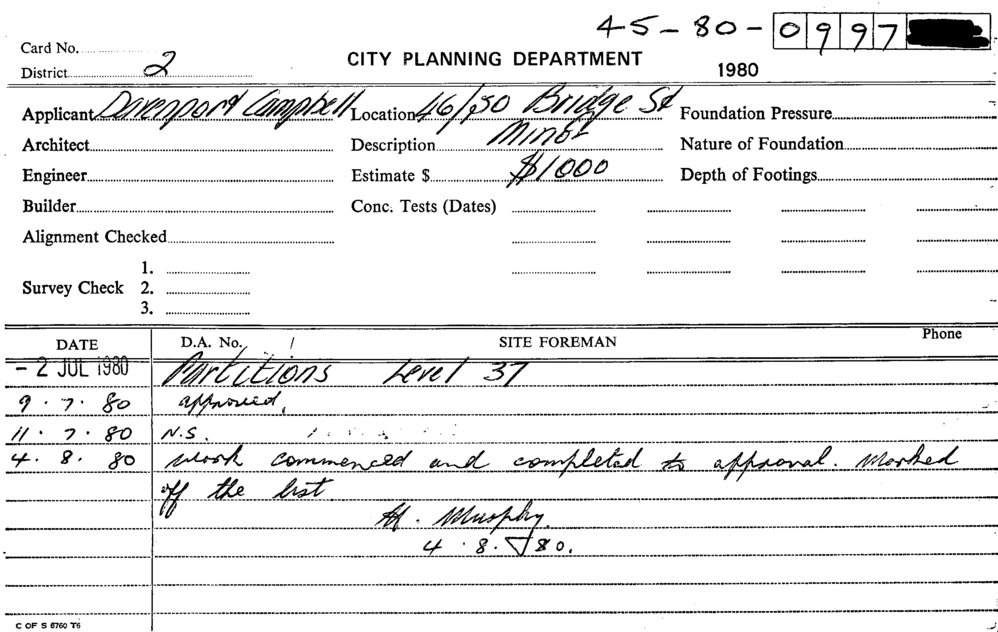 45-80-0997
Card No.
CITY PLANNING DEPARTMENT
District 2
1980
Applicant Davenport Campbell Location 46/50 Bridge St Foundation Pressure
Architect Description Minor Nature of Foundation
Engineer Estimate $ $1000 Depth of Footings
Builder Conc. Tests (Dates)
Alignment Checked
1.
Survey Check 2.
3.
DATE D.A. No. / SITE FOREMAN Phone
- 2 JUL 1980 Partitions Level 37
9.7.80 approved.
11.7.80 N.S.
4.8.80 work commenced and completed to approval. Marked
off the list
Murphy.
4.8.80.
C OF S 6760 T6